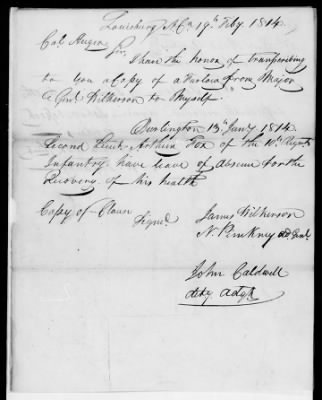 Louisburg N.C. 19th Feby. 1814.
Col. Sir,
I have the honor of transcribing
to you a Copy of a Furlow from Major
Genl. Wilkerson to Myself.
Burlington 13th Jany 1814.
Second Lieut. Arthur Fox of the 10th Regmt
Infantry have leave of absence for the
Recovery of his health
Copy of Signed James Wilkerson
N. Pinkney
John Caldwell